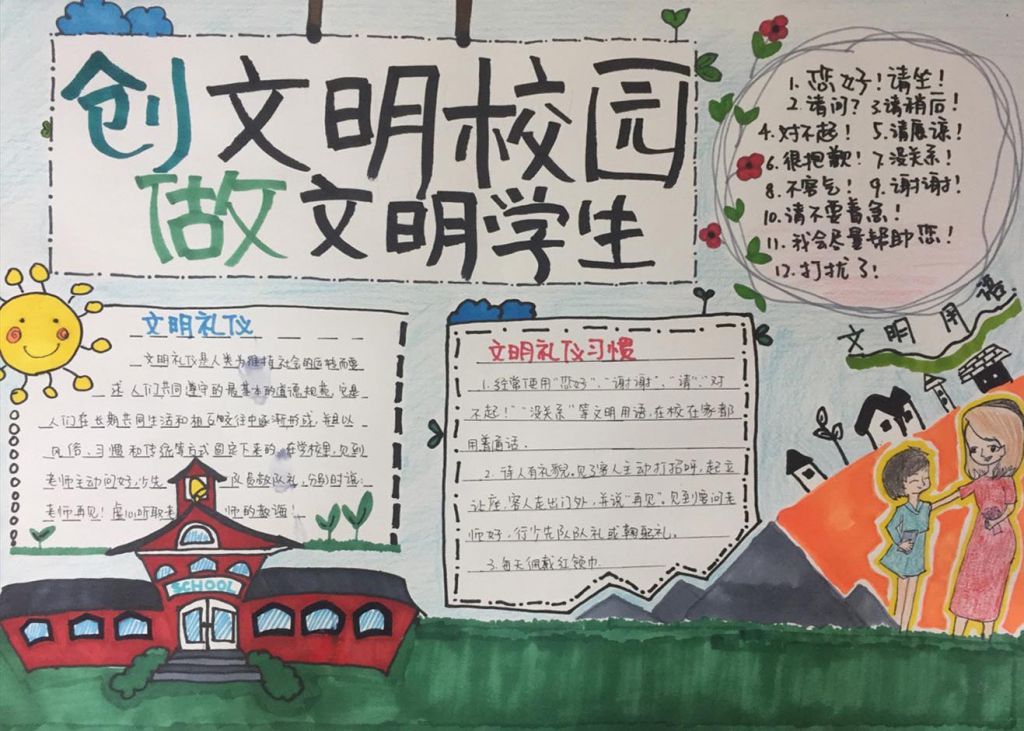 创文明校园
做文明学生
1. 您好！请坐！
2. 请问？ 3. 请稍后！
4. 对不起！ 5. 请原谅！
6. 很抱歉！ 7. 没关系！
8. 不客气！ 9. 谢谢！
10. 请不要着急！
11. 我会尽量帮助您！
12. 打扰了！
文明用语
文明礼仪
文明礼仪是人类为维持社会的运转而要
求人们共同遵守的最基本的道德规范，它是
人们在长期共同生活和相互交往中逐渐形成，并且以
风俗、习惯和传统等方式固定下来的。在学校里，见到
老师主动问好，少先 队员敬队礼，分别时说：
老师再见！虚心听取老 师的教诲！
SCHOOL
文明礼仪习惯
1. 经常使用“您好”、“谢谢”、“请”、“对
不起！”“没关系”等文明用语，在校在家都
用普通话。
2. 待人有礼貌，见到客人主动打招呼，起立
让座，客人走出门外，并说“再见”。见到要问老
师好，行少先队队礼或鞠躬礼。
3. 每天佩戴红领巾